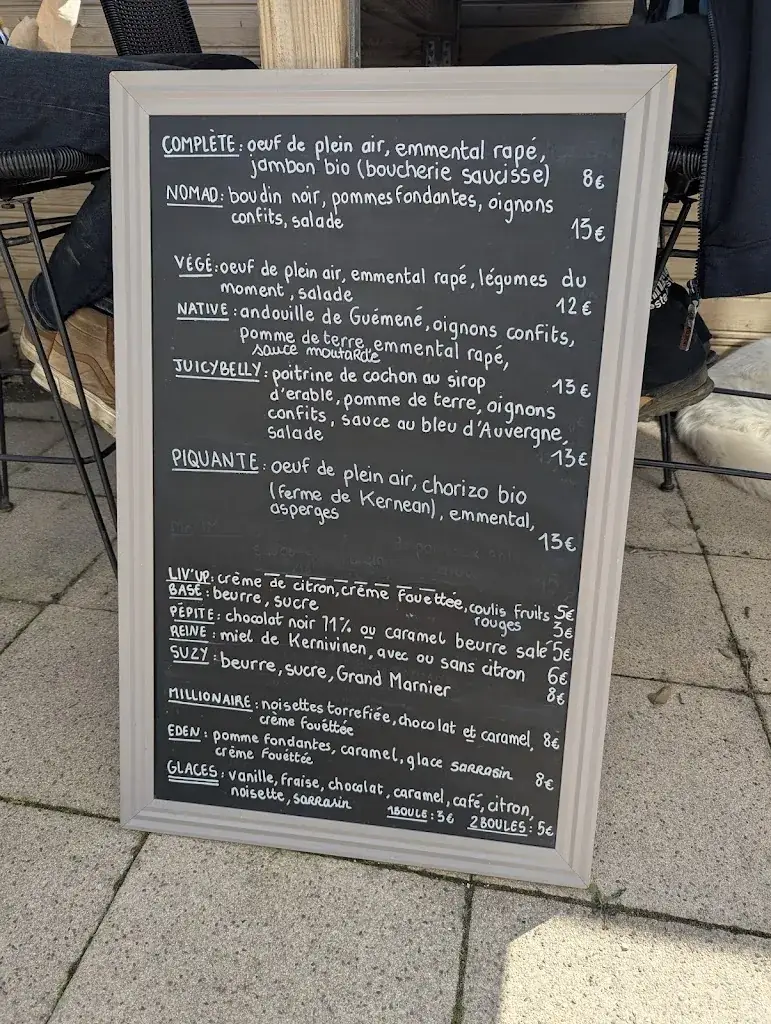 COMPLÈTE : oeuf de plein air, emmental rapé,
jambon bio (boucherie saucisse) 8€
NOMAD : boudin noir, pommes fondantes, oignons
confits, salade 13€
VÉGÉ : oeuf de plein air, emmental rapé, légumes du
moment, salade 12€
NATIVE : andouille de Guémené, oignons confits,
pomme de terre, emmental rapé,
sauce moutarde 13€
JUICYBELLY : poitrine de cochon au sirop
d'erable, pomme de terre, oignons
confits, sauce au bleu d'Auvergne,
salade 13€
PIQUANTE : oeuf de plein air, chorizo bio
(ferme de Kernean), emmental,
asperges 13€
LIV'UP : crème de citron, crème fouettée, coulis fruits 5€
rouges
BASE : beurre, sucre 3€
PÉPITE : chocolat noir 71% ou caramel beurre salé 5€
REINE : miel de Kernivinen, avec ou sans citron 6€
SUZY : beurre, sucre, Grand Marnier 8€
MILLIONAIRE : noisettes torrefiée, chocolat et caramel, 8€
crème fouéttée
EDEN : pomme fondantes, caramel, glace sarrasin 8€
crème fouéttée
GLACES : vanille, fraise, chocolat, caramel, café, citron,
noisette, sarrasin 1 BOULE : 3€ 2 BOULES : 5€